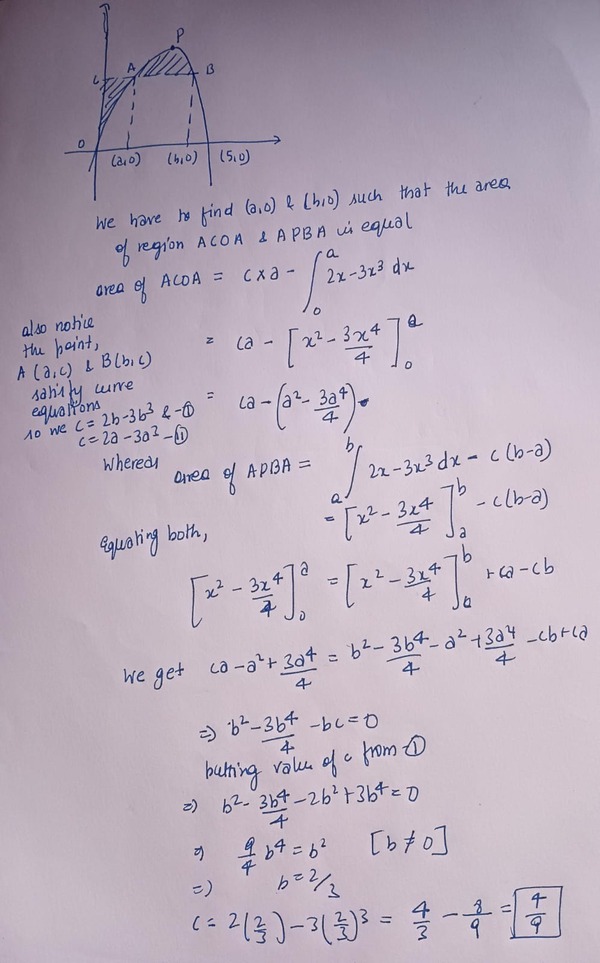 P
C A B
O (a,0) (b,0) (5,0)
We have to find (a,0) & (b,0) such that the area
of region ACOA & APBA is equal
area of ACOA = c×a - ∫₀ᵃ 2x-3x³ dx
also notice
the point,
A(a,c) & B(b,c)
satisfy curve
equations
so we c = 2b-3b³ & -①
c = 2a-3a³ -⑪
= ca - [x² - 3x⁴/4]₀ᵃ
= ca - (a² - 3a⁴/4)
Whereas
area of APBA = ∫ₐᵇ 2x-3x³ dx - c(b-a)
= [x² - 3x⁴/4]ₐᵇ - c(b-a)
Equating both,
[x² - 3x⁴/4]₀ᵃ = [x² - 3x⁴/4]ₐᵇ + ca - cb
We get ca - a² + 3a⁴/4 = b² - 3b⁴/4 - a² + 3a⁴/4 - cb + ca
=> b² - 3b⁴/4 - bc = 0
putting value of c from ①
=> b² - 3b⁴/4 - 2b² + 3b⁴ = 0
9/4 b⁴ = b² [b ≠ 0]
=> b = 2/3
c = 2(2/3) - 3(2/3)³ = 4/3 - 8/9 = 4/9